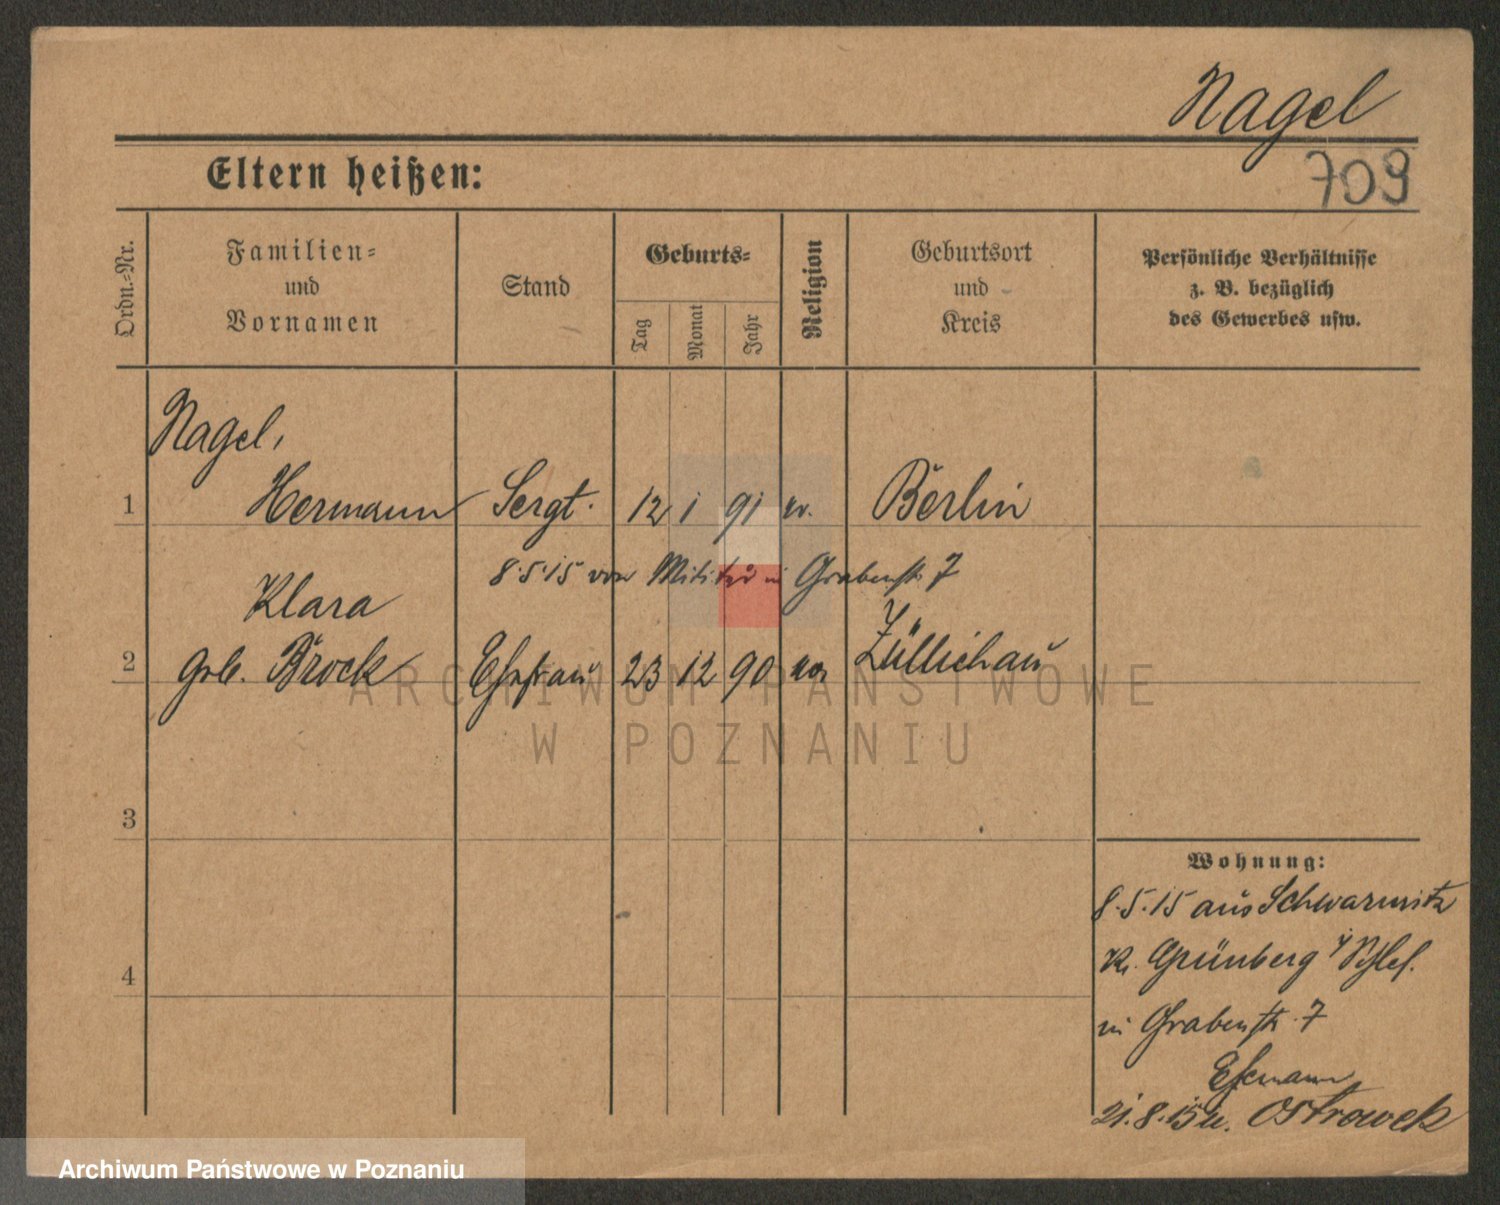 Nagel
709
Eltern heißen:
Ordn.-Nr.
Familien-
und
Vornamen
Stand
Geburts-
Tag
Monat
Jahr
Religion
Geburtsort
und
Kreis
Persönliche Verhältnisse
z. B. bezüglich
des Gewerbes usw.
Nagel,
1 Hermann Sergt. 12 1 91 ev. Berlin
8.5.15 vom Militär in Grabenstr. 7
Klara
2 geb. Brock Ehefrau 23 12 90 ev. Züllichau
3
4
Wohnung:
8.5.15 aus Schwarmitz
Kr. Grünberg i/Schles.
in Grabenstr. 7
Ehemann
21.8.15 n. Ostrowek
ARCHIWUM PAŃSTWOWE
W POZNANIU
Archiwum Państwowe w Poznaniu